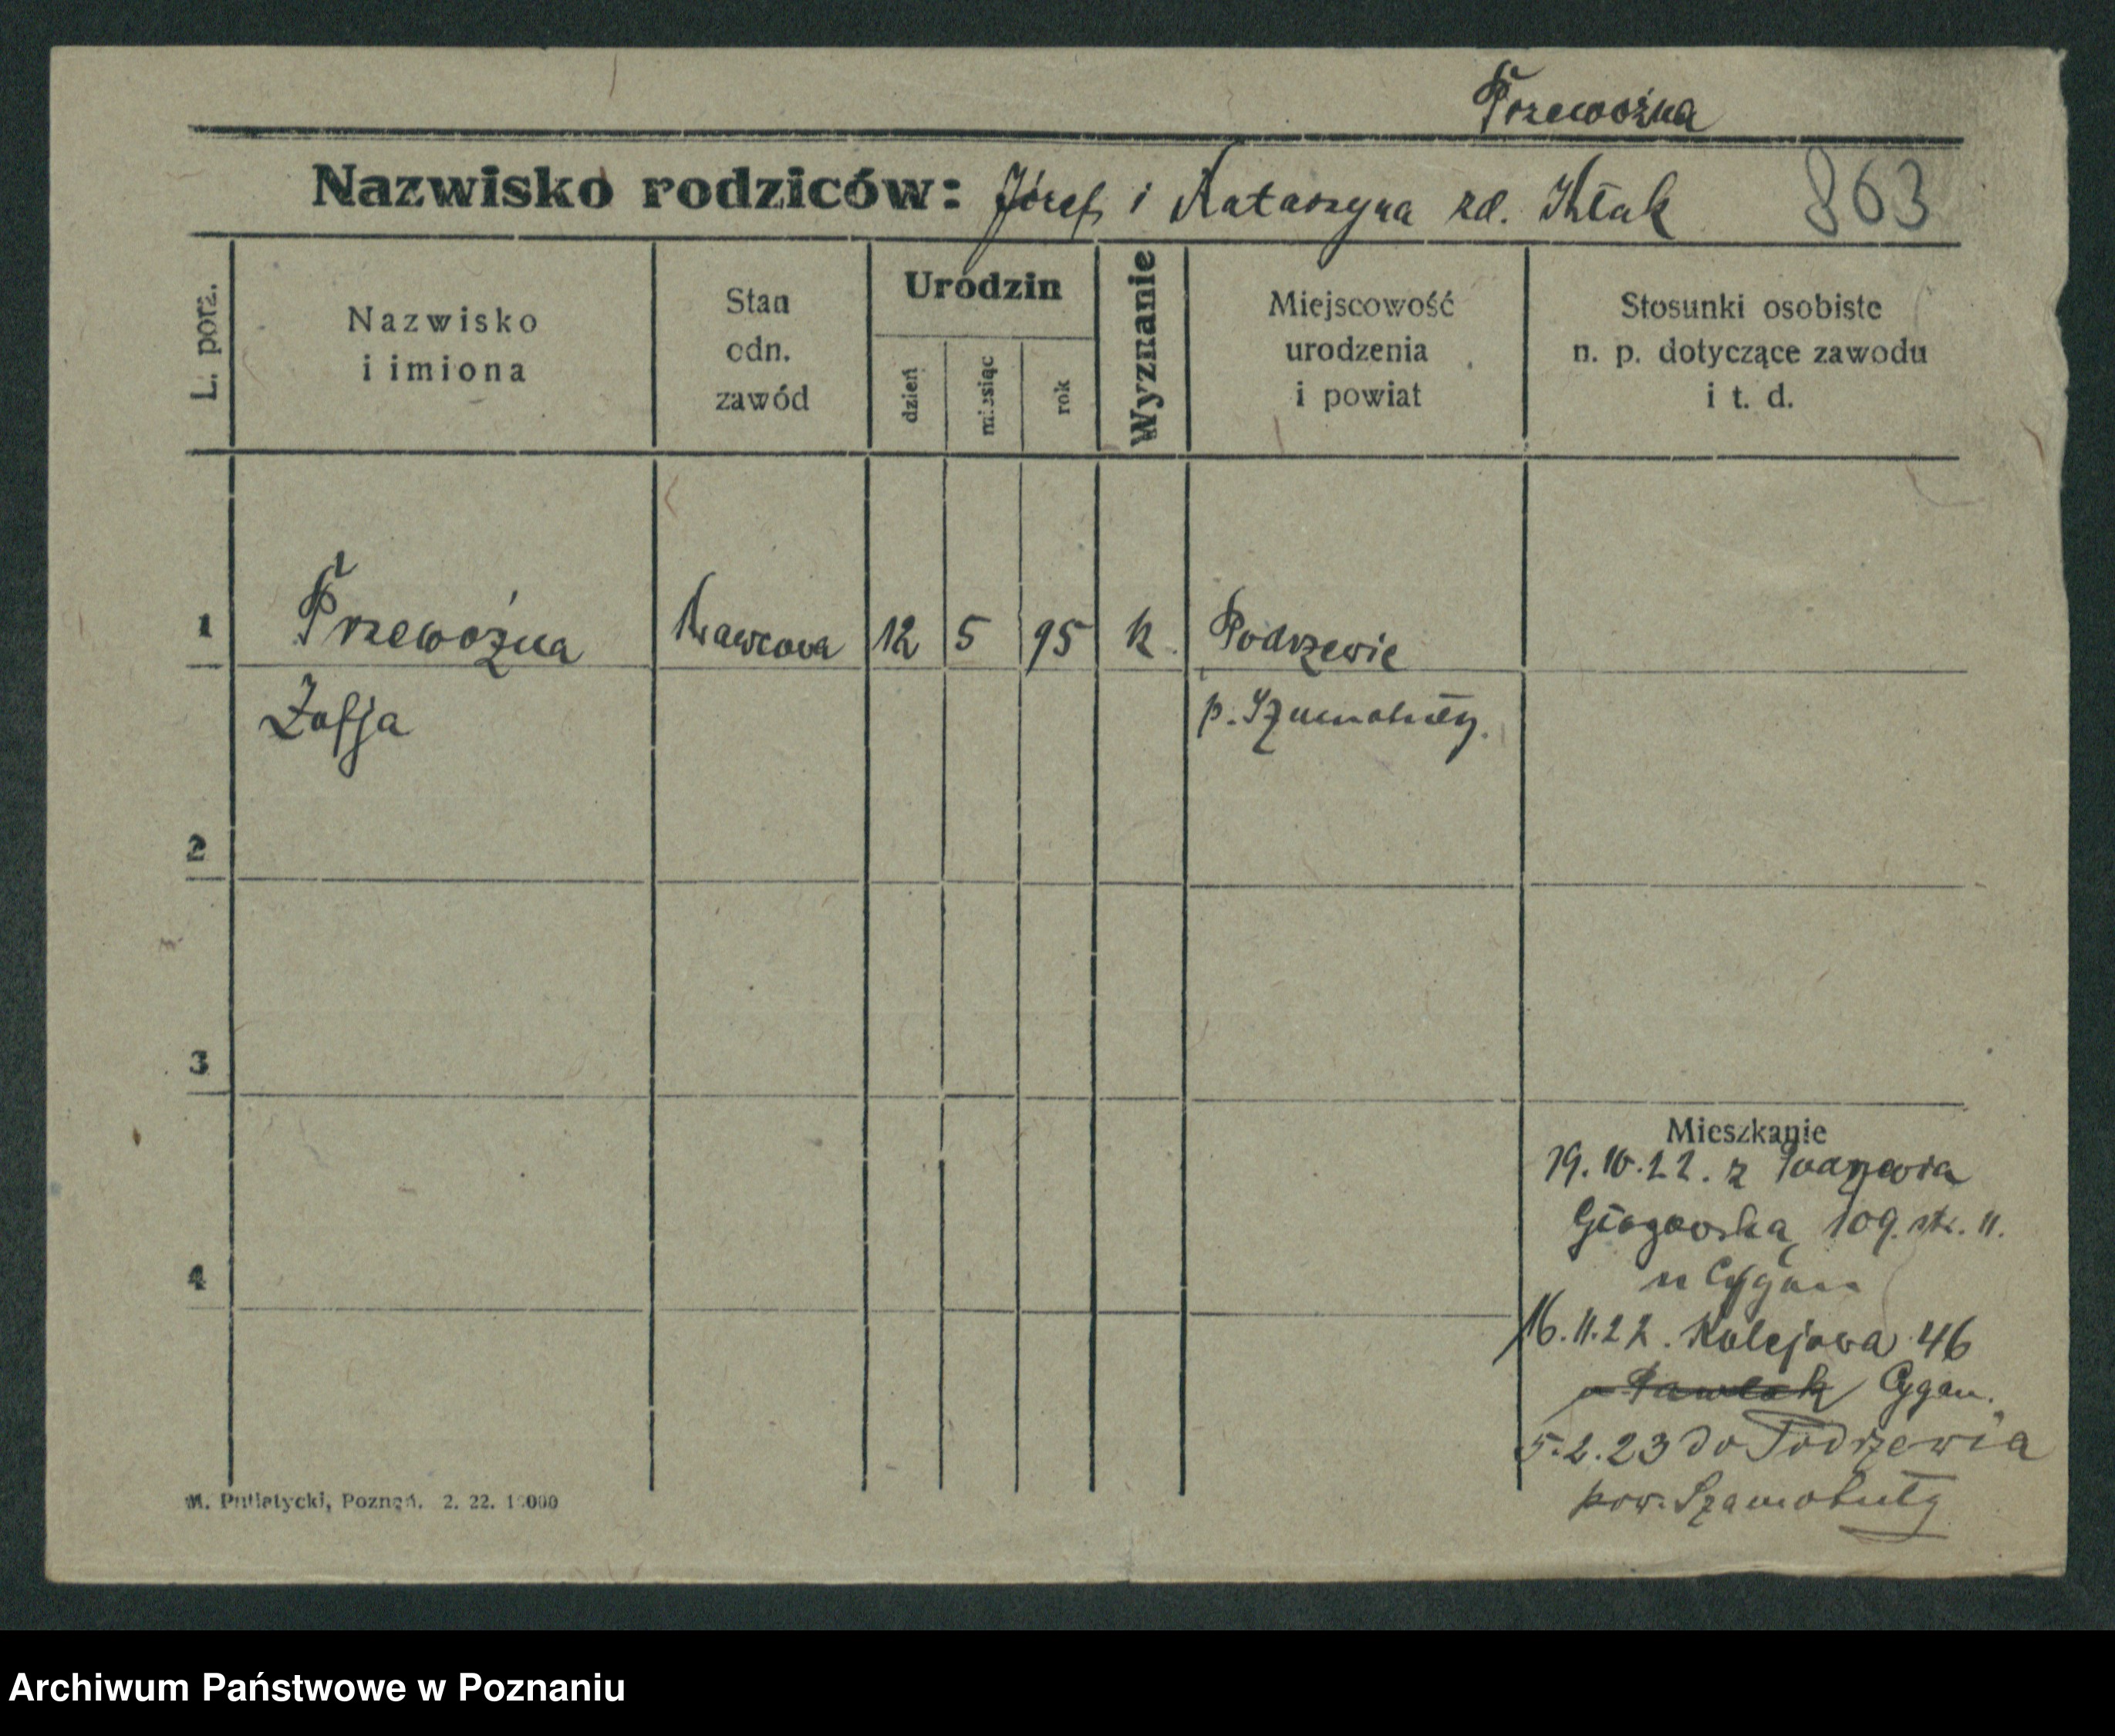 Przewoźna
Nazwisko rodziców: Józef i Katarzyna zd. 863
L. porz.
Nazwisko
i imiona
Stan
odn.
zawód
Urodzin
dzień
miesiąc
rok
Wyznanie
Miejscowość
urodzenia
i powiat
Stosunki osobiste
n. p. dotyczące zawodu
i t. d.
1 Przewoźna Krawcowa 12 5 95 k. Podrzewie
Zofja p. Szamotuły.
2
3
Mieszkanie
19.10.22. z Podrzewia
Głogowska 109. str. II.
4
u Cygan
16.11.22. Kolejowa 46
u Pawlak Cygan.
5.2.23 do Podrzewia
pow. Szamotuły
M. Putiatycki, Poznań. 2. 22. 10000
Archiwum Państwowe w Poznaniu